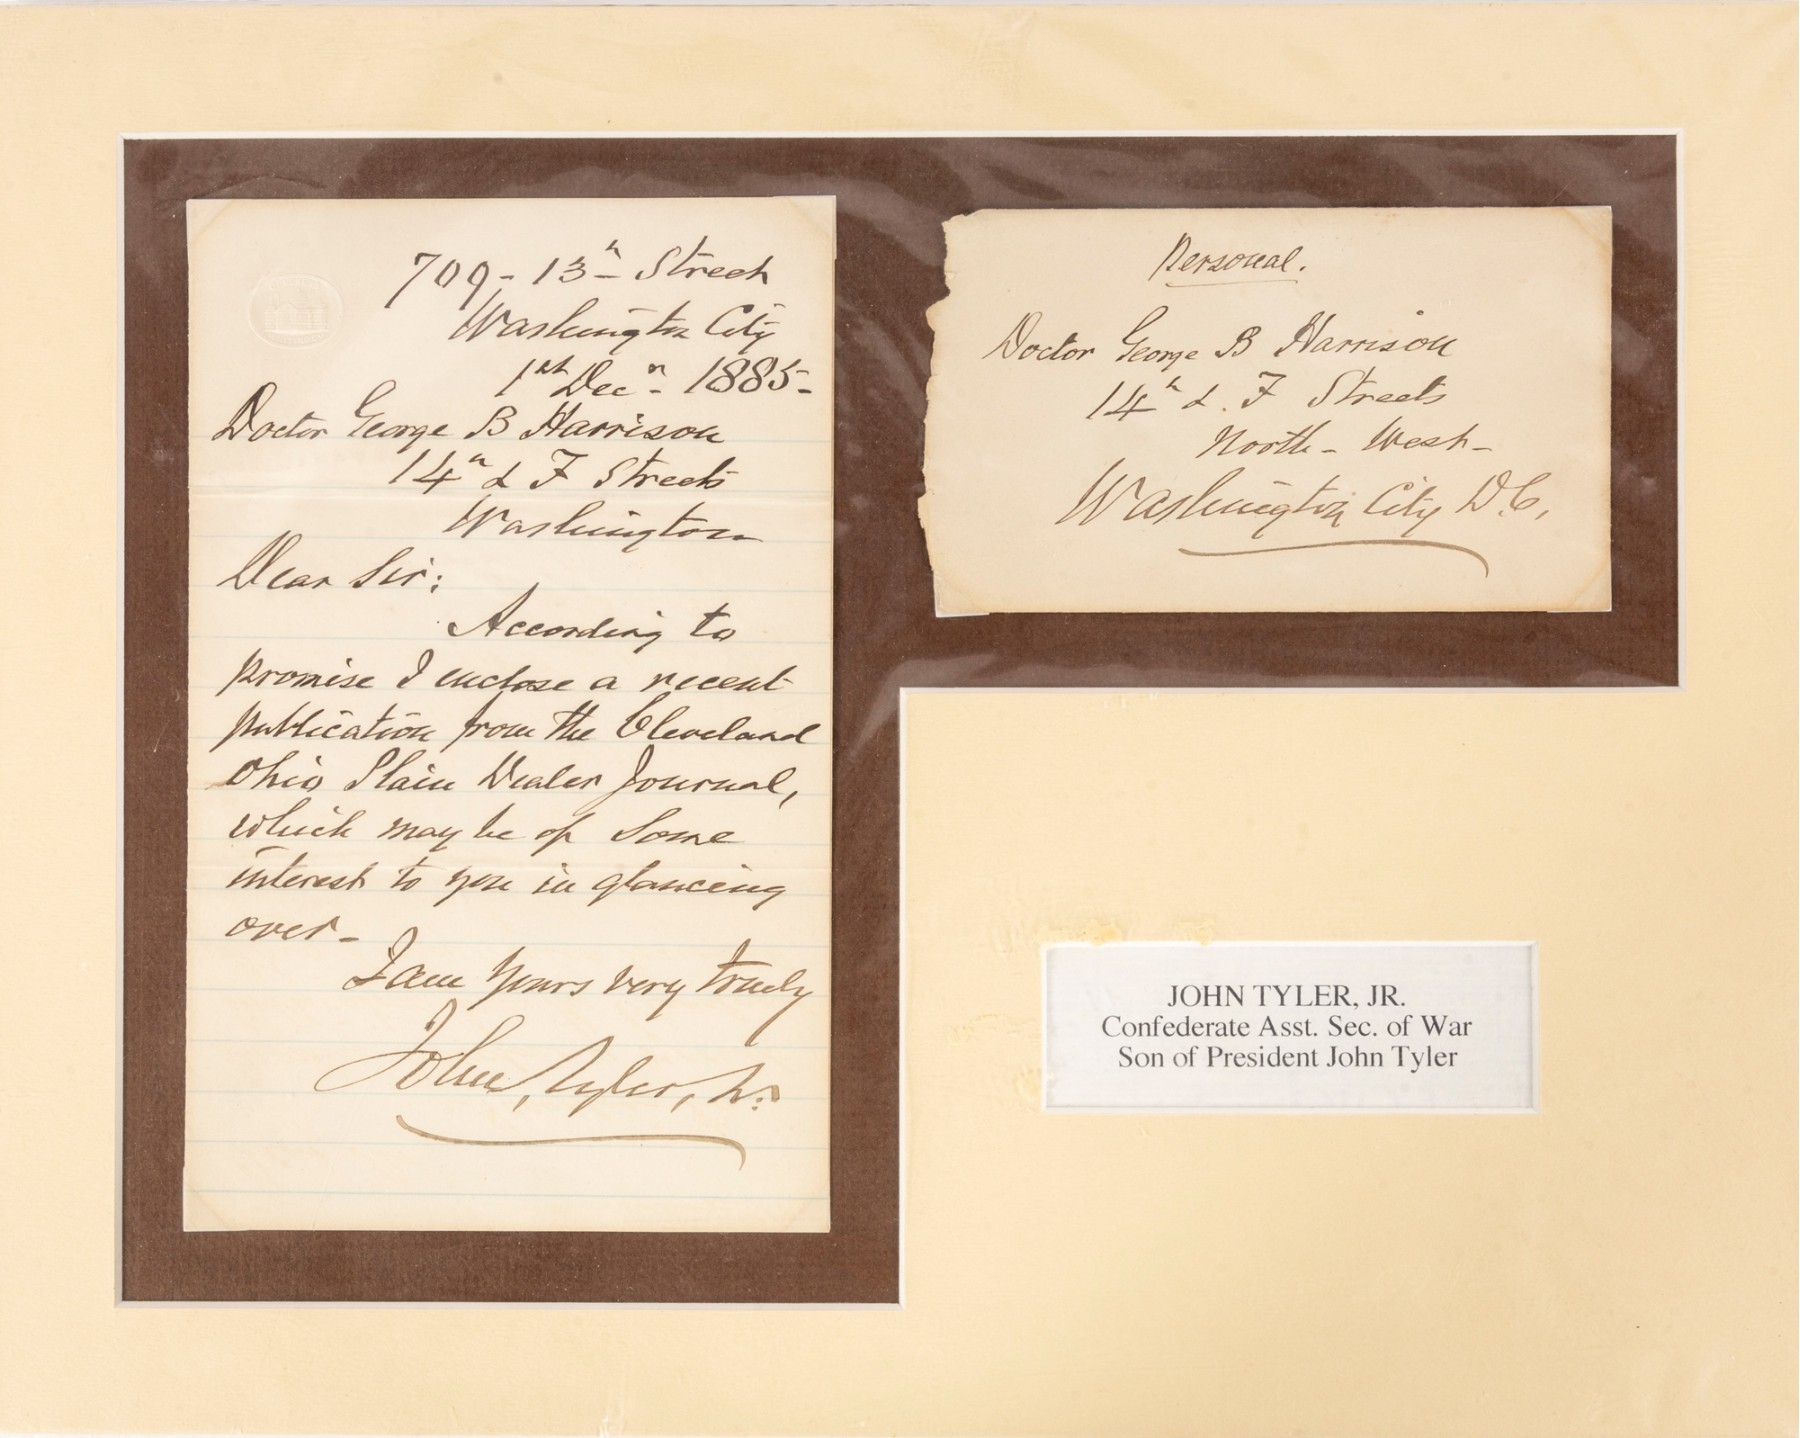 709 - 13th Street
Washington City
1st Decr - 1885 -
Doctor George B Harrison
14th & F Streets
Washington
Dear Sir:
According to
promise I enclose a recent
publication from the Cleveland
Ohio Plain Dealer Journal,
which may be of some
interest to you in glancing
over -
I am yours very truly
John, Tyler, Jr.
Personal.
Doctor George B Harrison
14th & F Streets
North - West -
Washington City D.C,
JOHN TYLER, JR.
Confederate Asst. Sec. of War
Son of President John Tyler